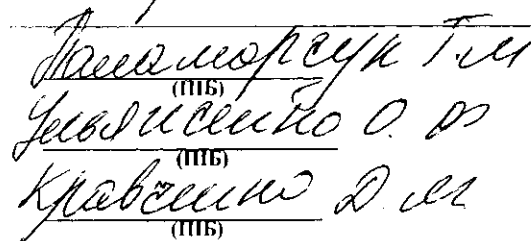 Паламорчук Т.М
(ПІБ)
Ульянченко О. В
(ПІБ)
Кравченко Д.М
(ПІБ)